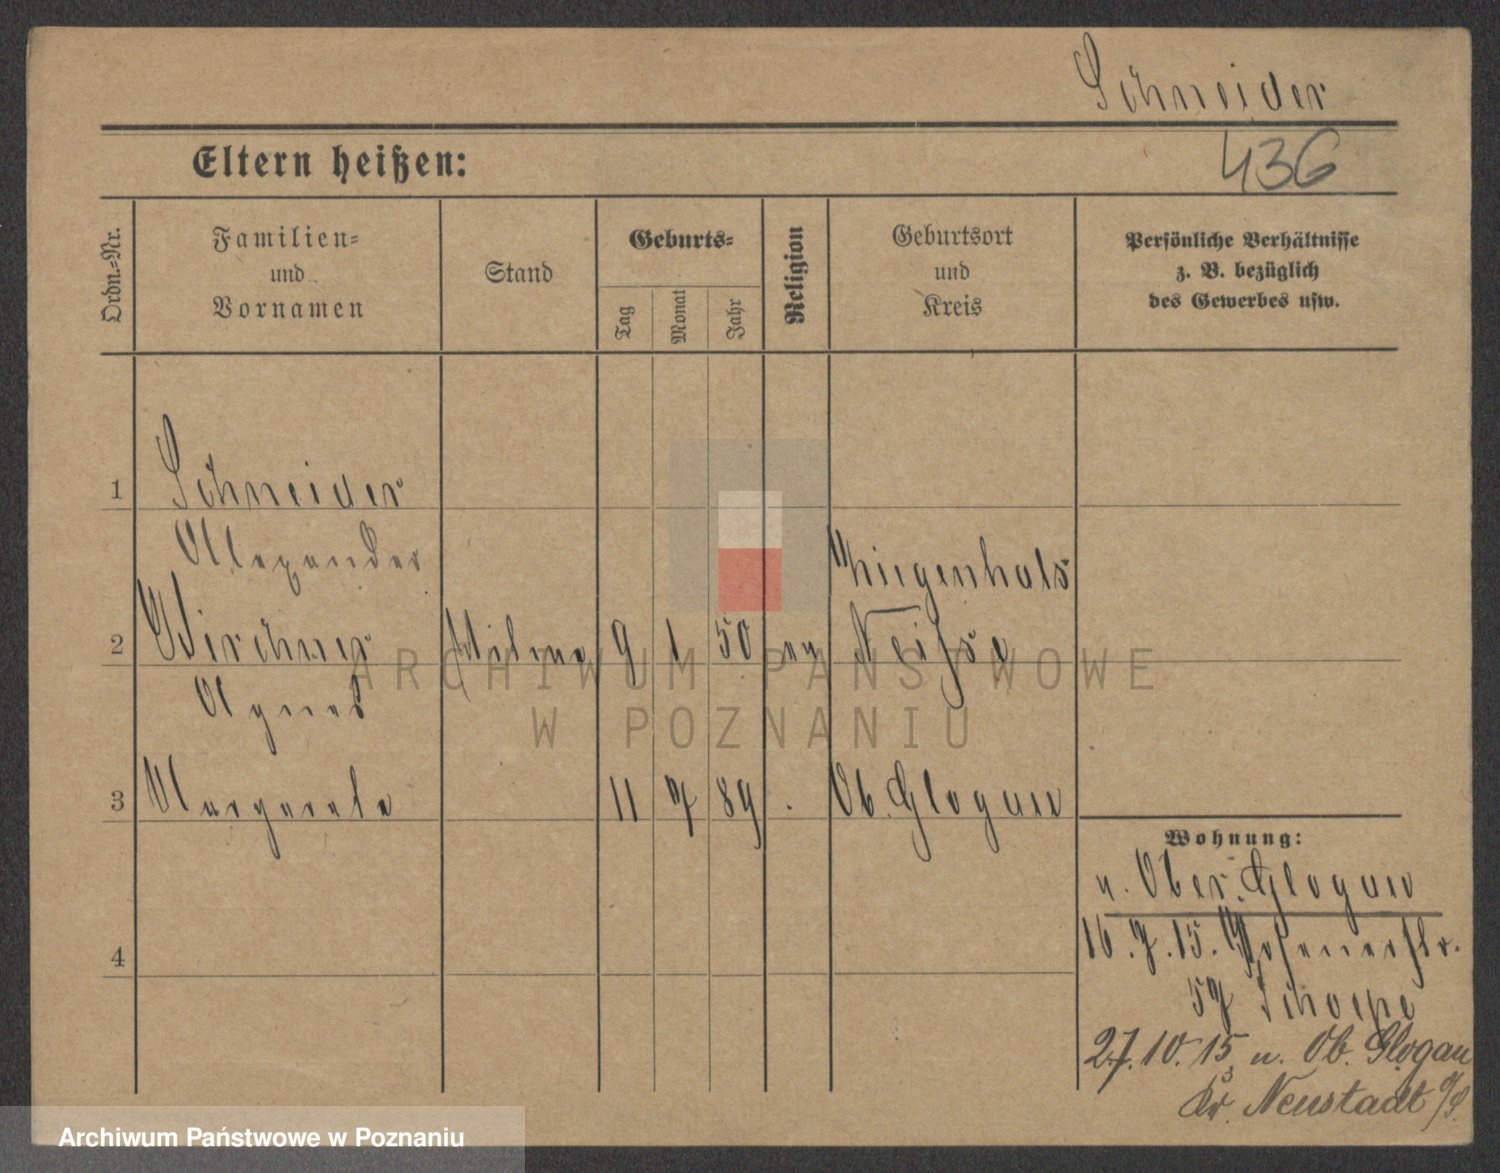 Schneider
436
Eltern heißen:
Ordn.-Nr.
Familien-
und
Vornamen
Stand
Geburts-
Tag
Monat
Jahr
Religion
Geburtsort
und
Kreis
Persönliche Verhältnisse
z. B. bezüglich
des Gewerbes usw.
1 Schneider
Alexander
Ziegenhals
2 Wirchner 9 1 50 ev Neisse
Agnes
3 Margarete 11 7 89 Ob. Glogau
4
Wohnung:
n. Ober. Glogau
16.7.15. Posenerstr.
57 Schoepe
27.10.15 n. Ob. Glogau
Kr. Neustadt o/S.
ARCHIWUM PAŃSTWOWE
W POZNANIU
Archiwum Państwowe w Poznaniu